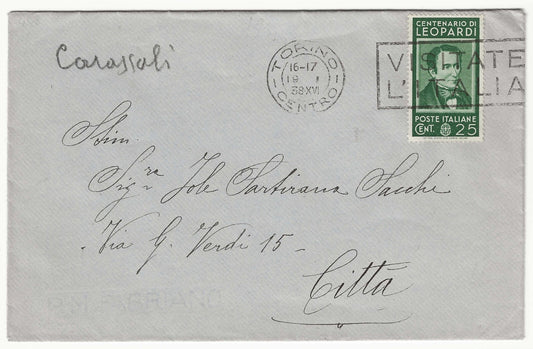 Carassali
TORINO
CENTRO
16-17
19 I
38 XVI
VISITATE
L'ITALIA
CENTENARIO DI
LEOPARDI
POSTE ITALIANE
CENT. 25
Stim.
Sig.ra Jole Sartirana Sacchi
Via G. Verdi 15 -
Città